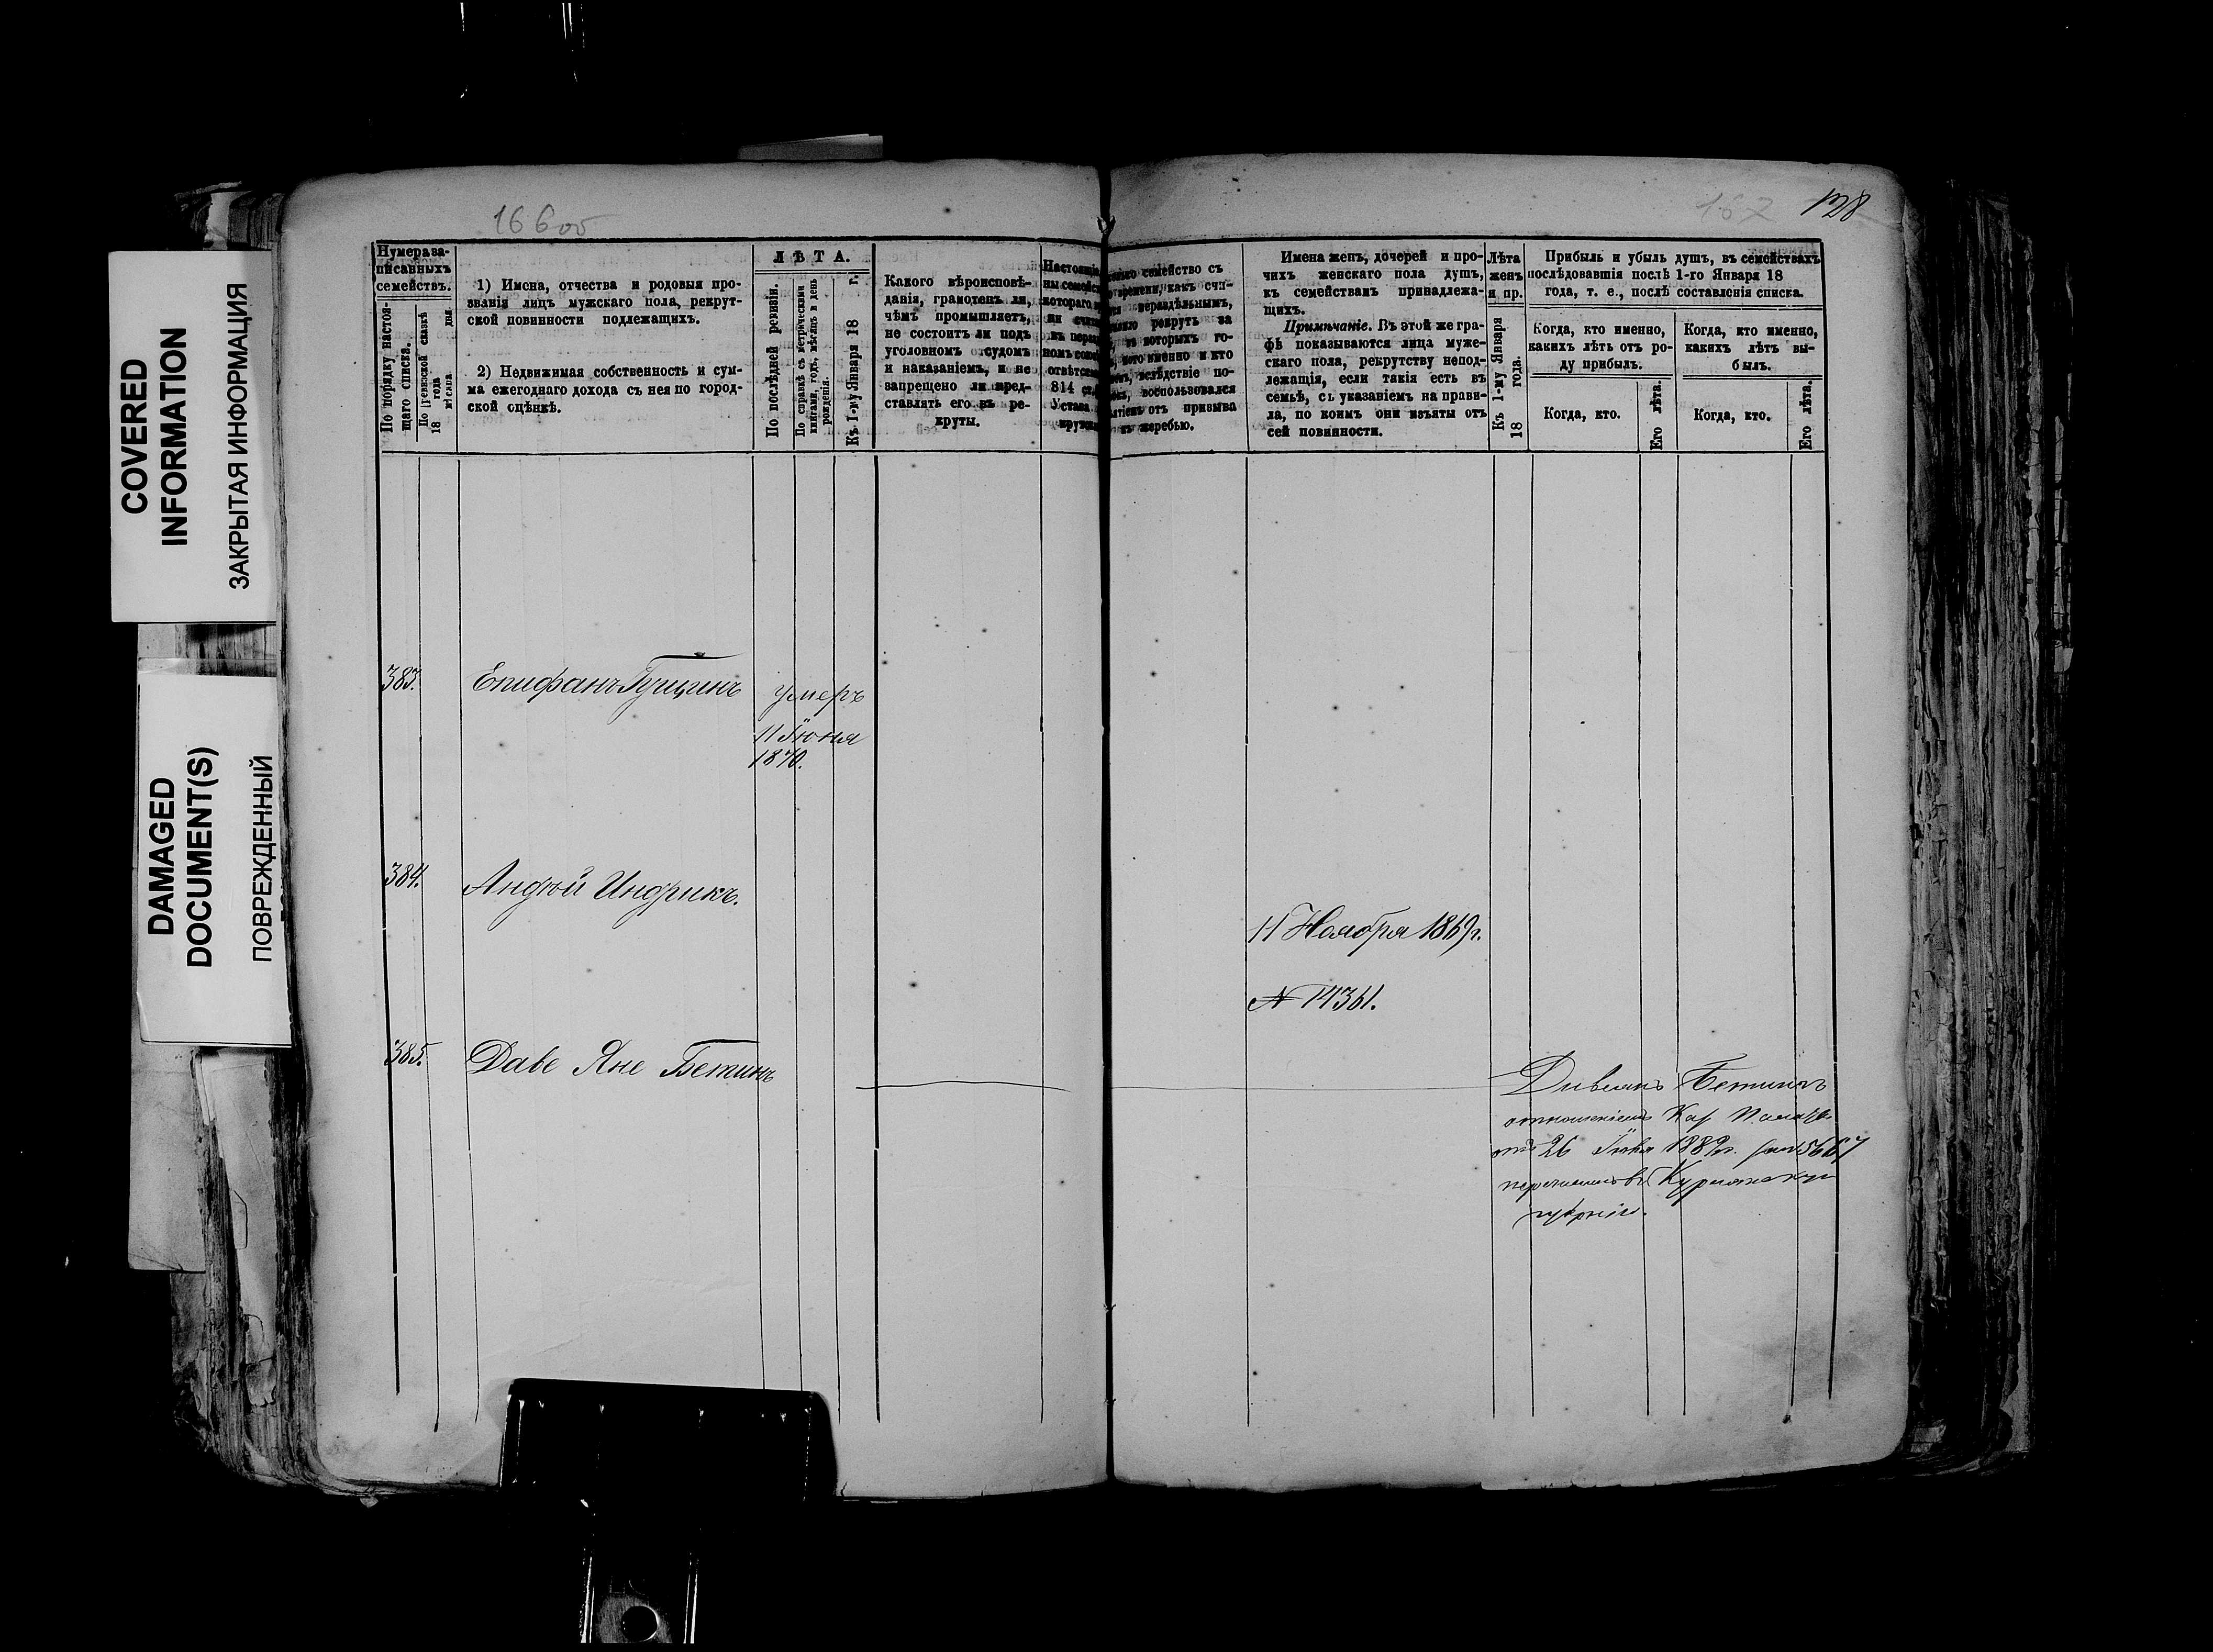 COVERED
INFORMATION
ЗАКРЫТАЯ ИНФОРМАЦИЯ
DAMAGED
DOCUMENT(S)
ПОВРЕЖДЕННЫЙ
166об
Нумера за-
писанныхъ
семействъ.
По порядку настоя-
щаго списка.
По ревизской сказкѣ
18 года
мѣсяца дня.
1) Имена, отчества и родовыя про-
званія лицъ мужскаго пола, рекрут-
ской повинности подлежащихъ.
2) Недвижимая собственность и сум-
ма ежегоднаго дохода съ нея по город-
ской оцѣнкѣ.
ЛѢТА.
По послѣдней ревизіи.
По справкѣ съ метрическими
книгами, годъ, мѣсяцъ и день
рожденія.
Къ 1-му Января 18 г.
Какого вѣроисповѣ-
данія, грамотенъ ли,
чѣмъ промышляетъ,
не состоитъ ли подъ
уголовномъ судомъ
и наказаніемъ, и не
запрещено ли пред-
ставлять его въ ре-
круты.
383.
Епифанъ Гущинъ
умеръ
11 Іюня
1870.
384.
Андрей Индрикъ.
385.
Даве Яне Бетинъ
167
128
семейство съ
времени, какъ счи-
нераздѣльнымъ,
рекрутъ за
которыхъ го-
именно и кто
вслѣдствіе по-
воспользовался
отъ призыва
жеребью.
Имена женъ, дочерей и про-
чихъ женскаго пола душъ,
къ семействамъ принадлежа-
щихъ.
Примѣчаніе. Въ этой же гра-
фѣ показываются лица муже-
скаго пола, рекрутству непод-
лежащія, если такія есть въ
семьѣ, съ указаніемъ на прави-
ла, по коимъ они изъяты отъ
сей повинности.
Лѣта
женъ
и пр.
Къ 1-му Января
18 года.
Прибыль и убыль душъ, въ семействахъ
послѣдовавшія послѣ 1-го Января 18
года, т. е., послѣ составленія списка.
Когда, кто именно,
какихъ лѣтъ отъ ро-
ду прибылъ.
Когда, кто.
Его лѣта.
Когда, кто именно,
какихъ лѣтъ вы-
былъ.
Когда, кто.
Его лѣта.
11 Ноября 1869г.
№ 14361.
Бетинъ
отношеніемъ Каз Палаты
отъ 26 1889г. 5667
перечисленъ въ Курляндскую
губернію.